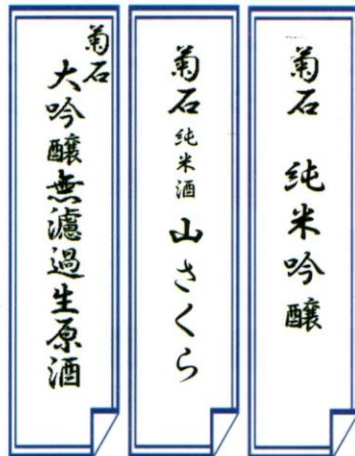 菊石 純米吟醸
菊石 純米酒 山さくら
菊石
大吟醸無濾過生原酒